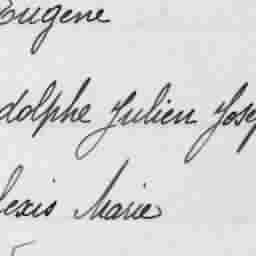 Eugene
dolphe Julien Jose
lexis Marie